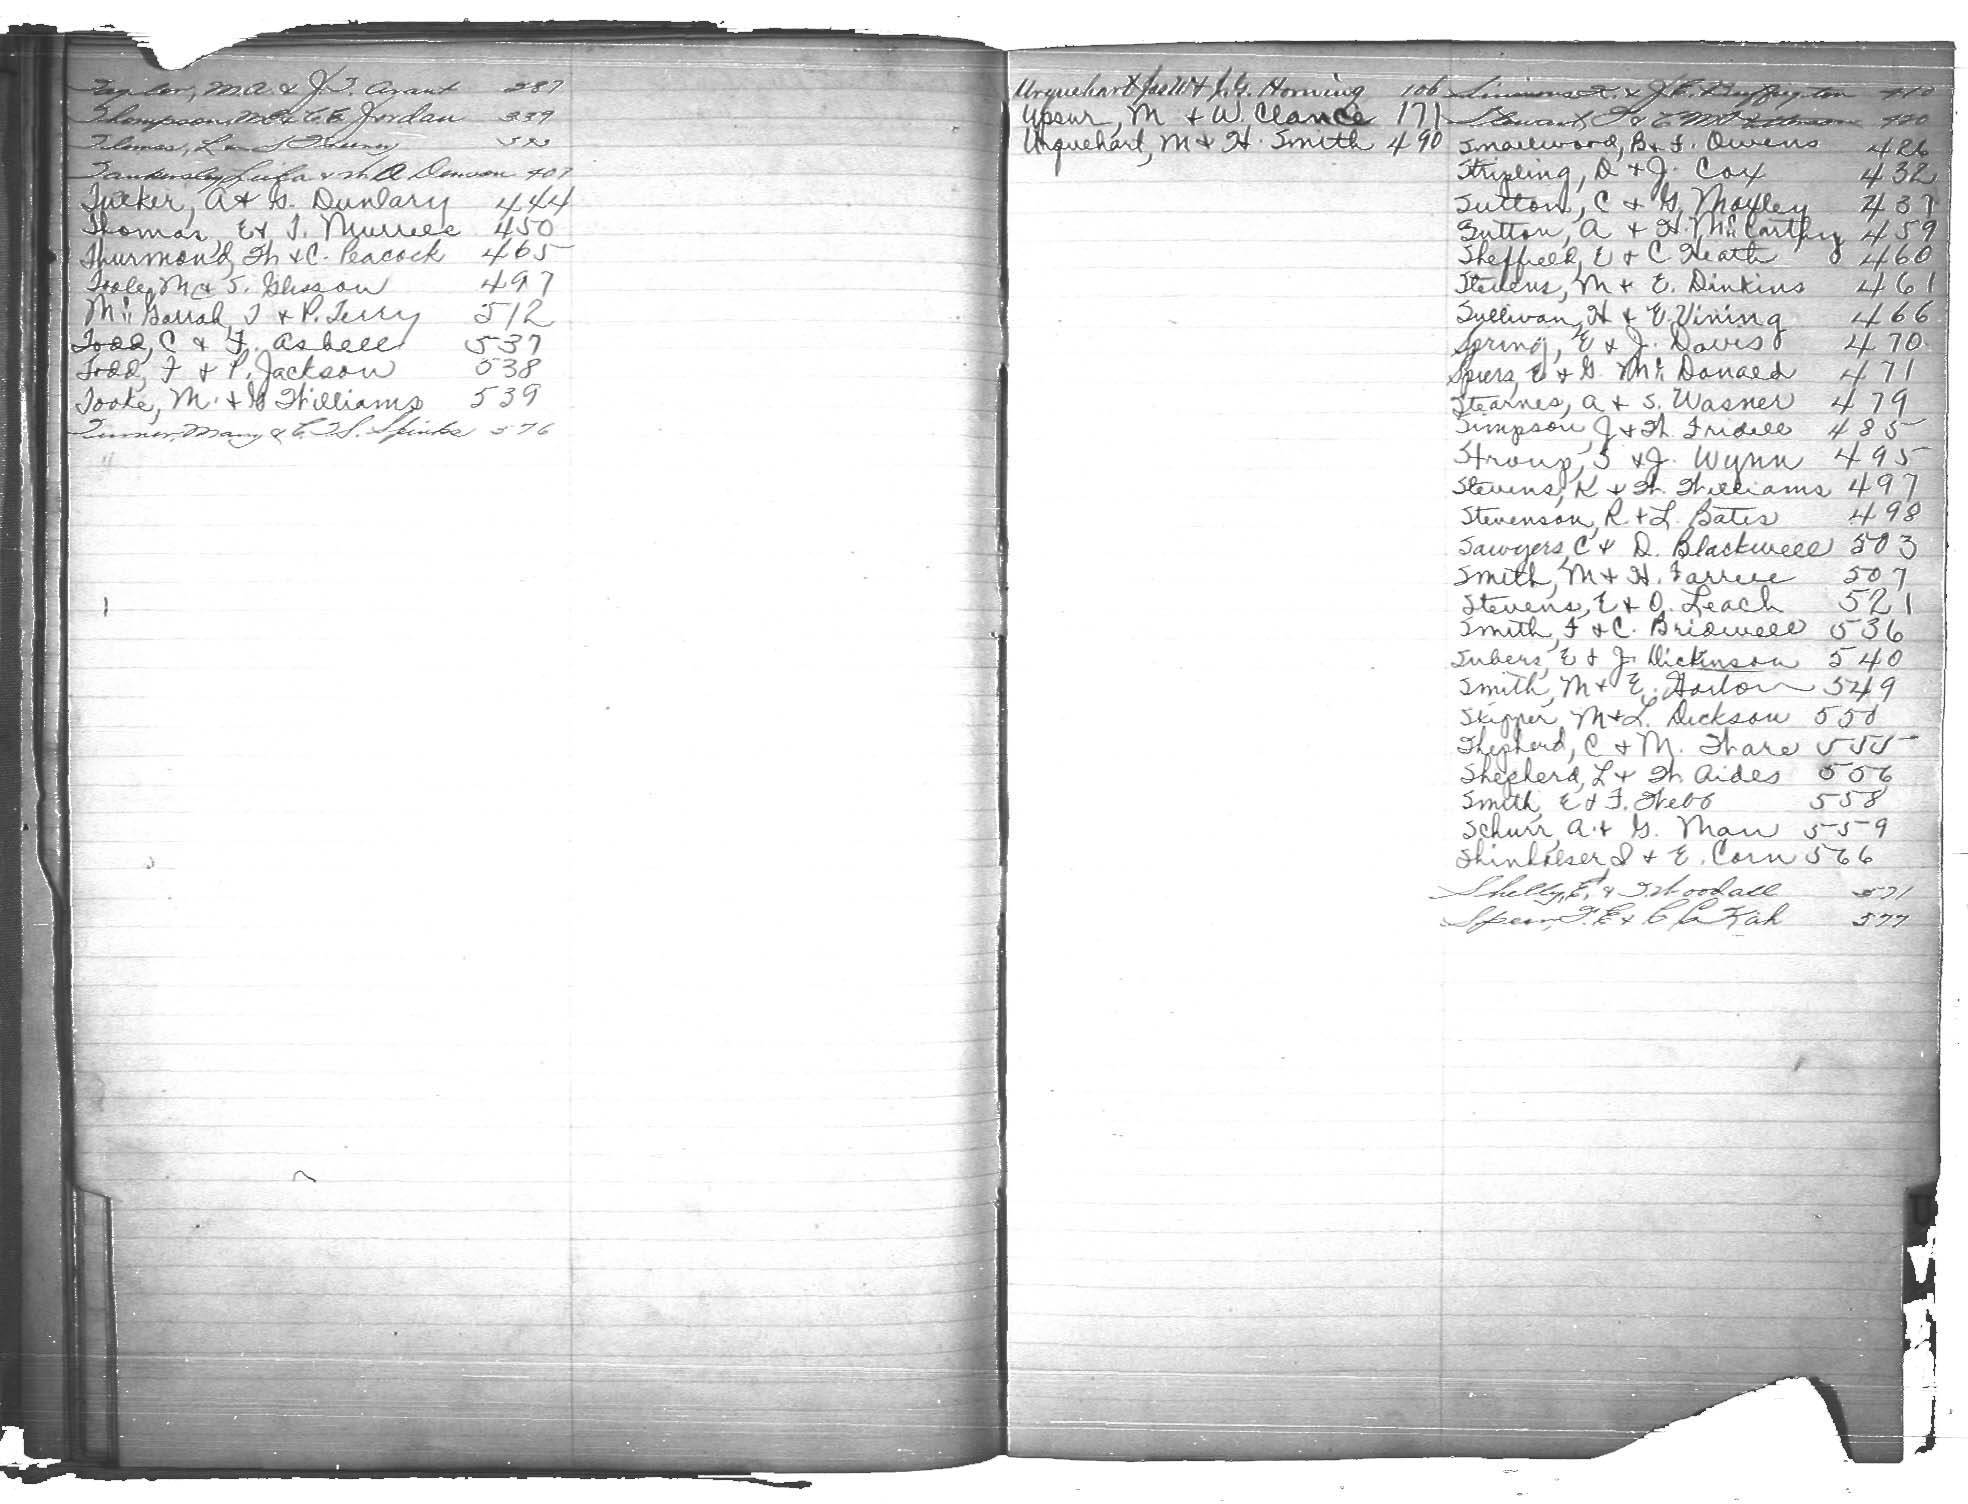 Taylor, M.A. & J.T. Avant 287
Thompson, & C.E. Jordan 339
Thomas, L
Tankersley, Lula & W.A. Denson 407
Tucker, A & G. Dunlary 444
Thomas, E & T. Murree 450
Thurmond, W & C. Peacock 465
Tooley, M & S. Glisson 497
McGarrah, T & P. Terry 512
Todd, C & F. Asbell 537
Todd, F & P. Jackson 538
Tooke, M. & G Williams 539
Turner, Mary & C.W. Spinks 576
Urquehart & J.G. Horning 106
Upsur, M & W. Clance 171
Urquehart, M & H. Smith 490
Simmons, & J.E. Buffington 410
Stewart, 420
Smallwood, B & F. Owens 426
Stripling, D & J. Cox 432
Sutton, C & G. Moxley 437
Sutton, A & H. McCarthy 459
Sheffield, E & C Heath 460
Stevens, M & E. Dinkins 461
Sullivan, H & E. Vining 466
Spring, E & J. Davis 470
Spiers, E & G. McDonald 471
Stearnes, A & S. Wasner 479
Simpson, J & W. Fridell 485
Stroup, S & J. Wynn 495
Stevens, K & W. Williams 497
Stevenson, R. & L. Bates 498
Sawyers, C & D. Blackwell 503
Smith, M & H. Farree 507
Stevens, E & O. Leach 521
Smith, F & C. Bridwell 536
Subers, E & J. Dickinson 540
Smith, M & E. Horton 549
Skipper, M & L. Dickson 550
Shepherd, C & M. Ware 555
Shepherd, L & W. Aides 556
Smith, E & F. Webb 558
Schurr, A. & G. Man 559
Shinholser, I & E. Corn 566
Shelly, E. & T. Woodall 571
Spear, F.E & C C Kah 577